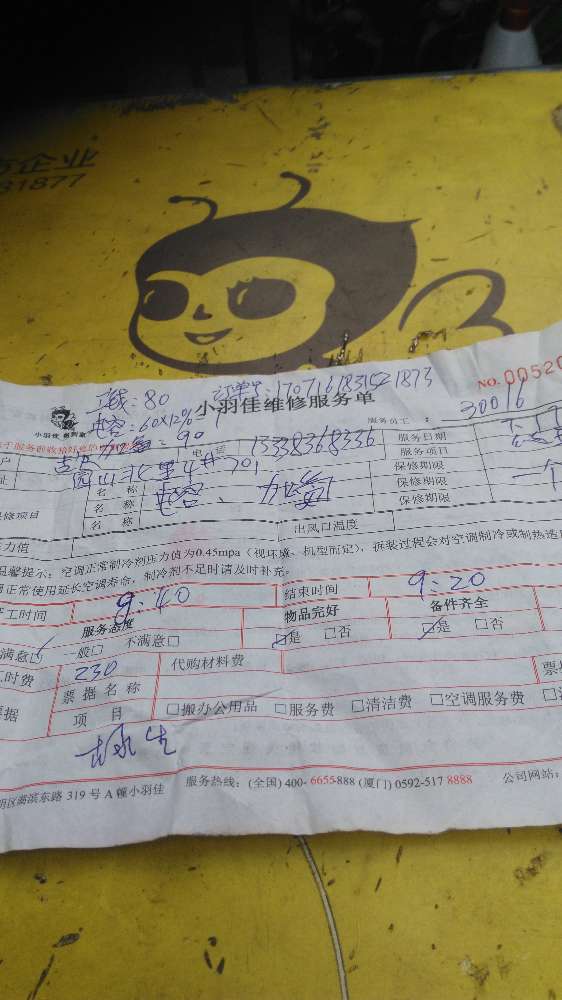 方企业
31877
立线:80
订单号:170716183521873
NO.00520
小羽佳维修服务单
电容:60×12%=
小羽佳
服务员工:
30016
90
电话
13338368336
服务日期
户
服务项目
址
园山北里
701
保修期限
名 称
电容、
保修期限
一个
修项目
名 称
名 称
出风口温度
力值
温馨提示:空调正常制冷剂压力值为0.45mpa(视环境、机型而定),拆装过程会对空调制冷或制热造
正常使用延长空调寿命,制冷剂不足时请及时补充。
工时间
9:40
结束时间
9:20
服务态度
物品完好
备件齐全
满意☑
一般□
不满意□
☑是
□否
☑是
□否
工时费
230
代购材料费
票据名称
票
据
项 目
□搬办公用品
□服务费
□清洁费
□空调服务费
明区湖滨东路 319 号 A 幢小羽佳
服务热线:(全国) 400-6655-888 (厦门) 0592-517 8888
公司网站: